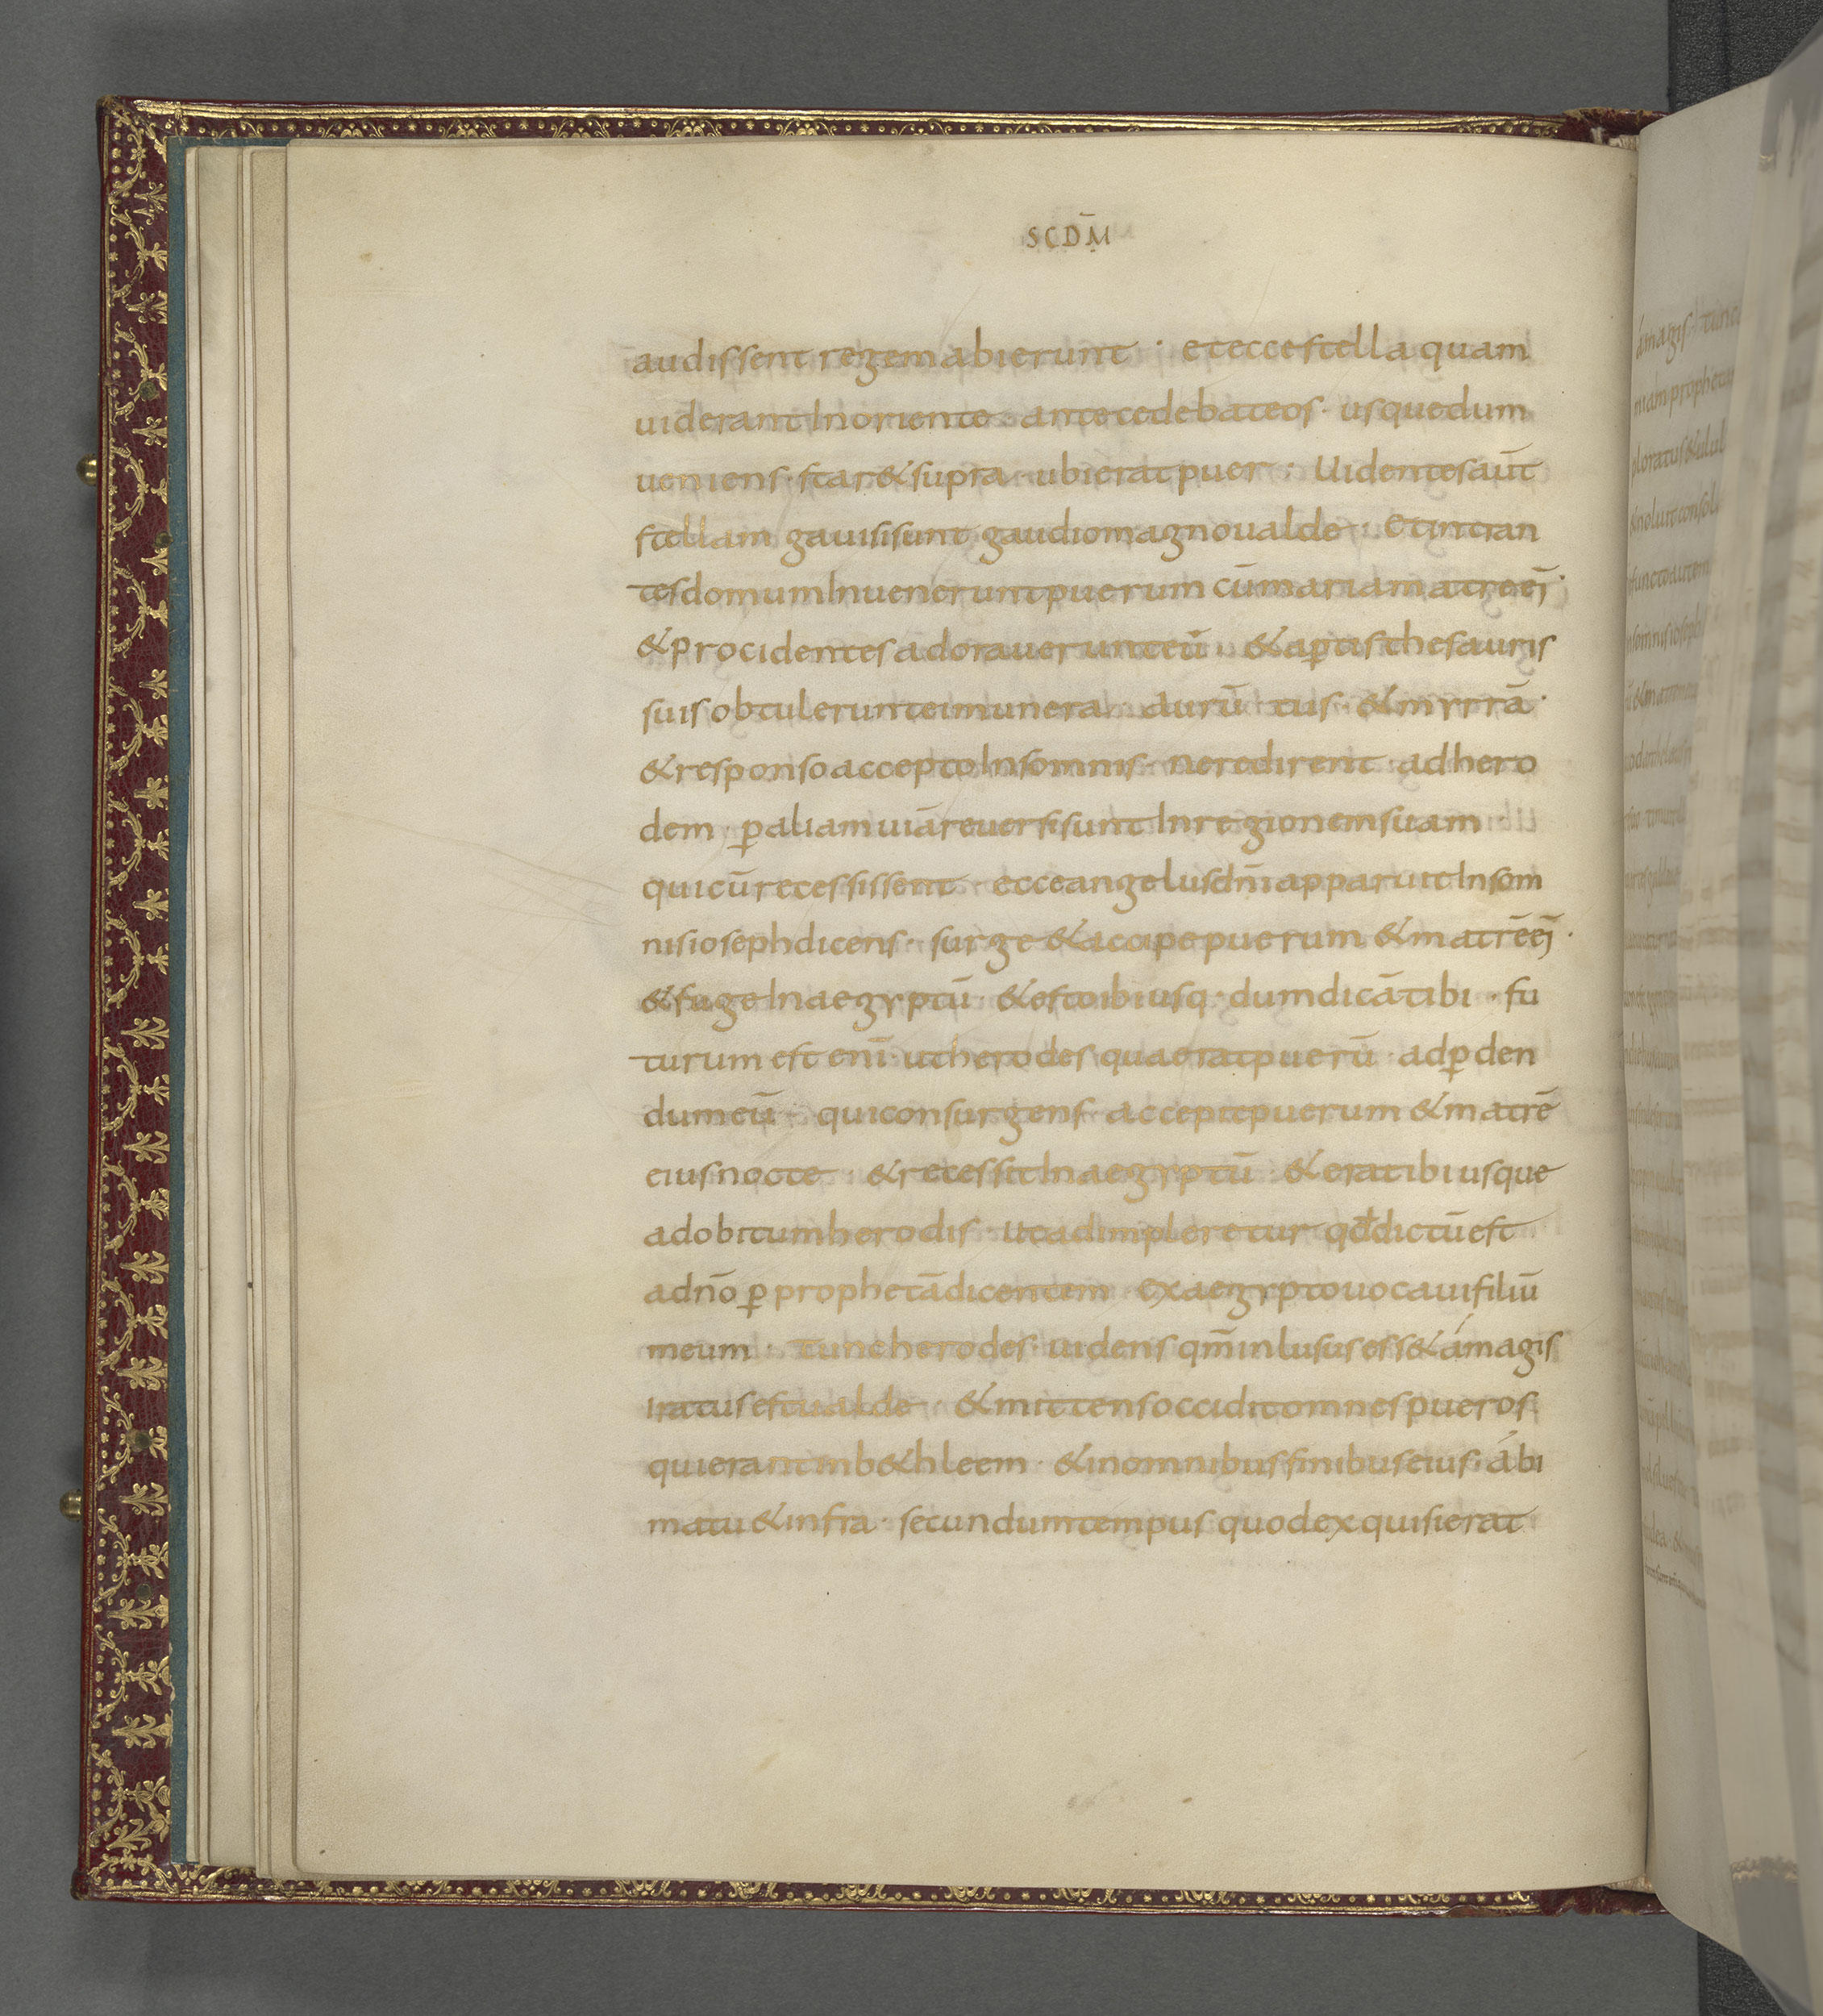 SCDM̄
audissent regem abierunt · et ecce stella quam
uiderant In oriente · antecedebat eos · usque dum
ueniens · star& supra · ubi erat puer · Uidentes aūt
stellam gauisi sunt gaudio magno ualde · Et intran
tes domum Inuenerunt puerum cū maria matre eī ·
& procidentes adorauerunt eū · & aꝑtis thesauris
suis obtulerunt ei munera · aurū tus · & myrrā ·
& responso accepto In somnis · ne redirent ad hero
dem · ꝑ aliam uiā reuersi sunt In regionem suam ·
qui cū recessissent · ecce angelus dn̄i apparuit In som
nis ioseph dicens · surge & accipe puerum & matrē eī ·
& fuge In aegyptū · & esto ibi usq · dum dicā tibi · fu
turum est eni ̄ ut herodes quaerat puerū · ad ꝑden
dum eū · qui consurgens accepit puerum & matrē
eius nocte · & recessit In aegyptū · & erat ibi usque
ad obitum herodis · ut adimpleretur qđ dictū est
a dn̄o ꝑ prophetā dicentem · ex aegypto uocaui filiū
meum · Tunc herodes · uidens qm̄ inlusus ess& á magis
iratus est ualde · & mittens occidit omnes pueros
qui erant in b&hleem · & in omnibus finibus eius · á bi
matu & infra · secundum tempus quod exquisierat